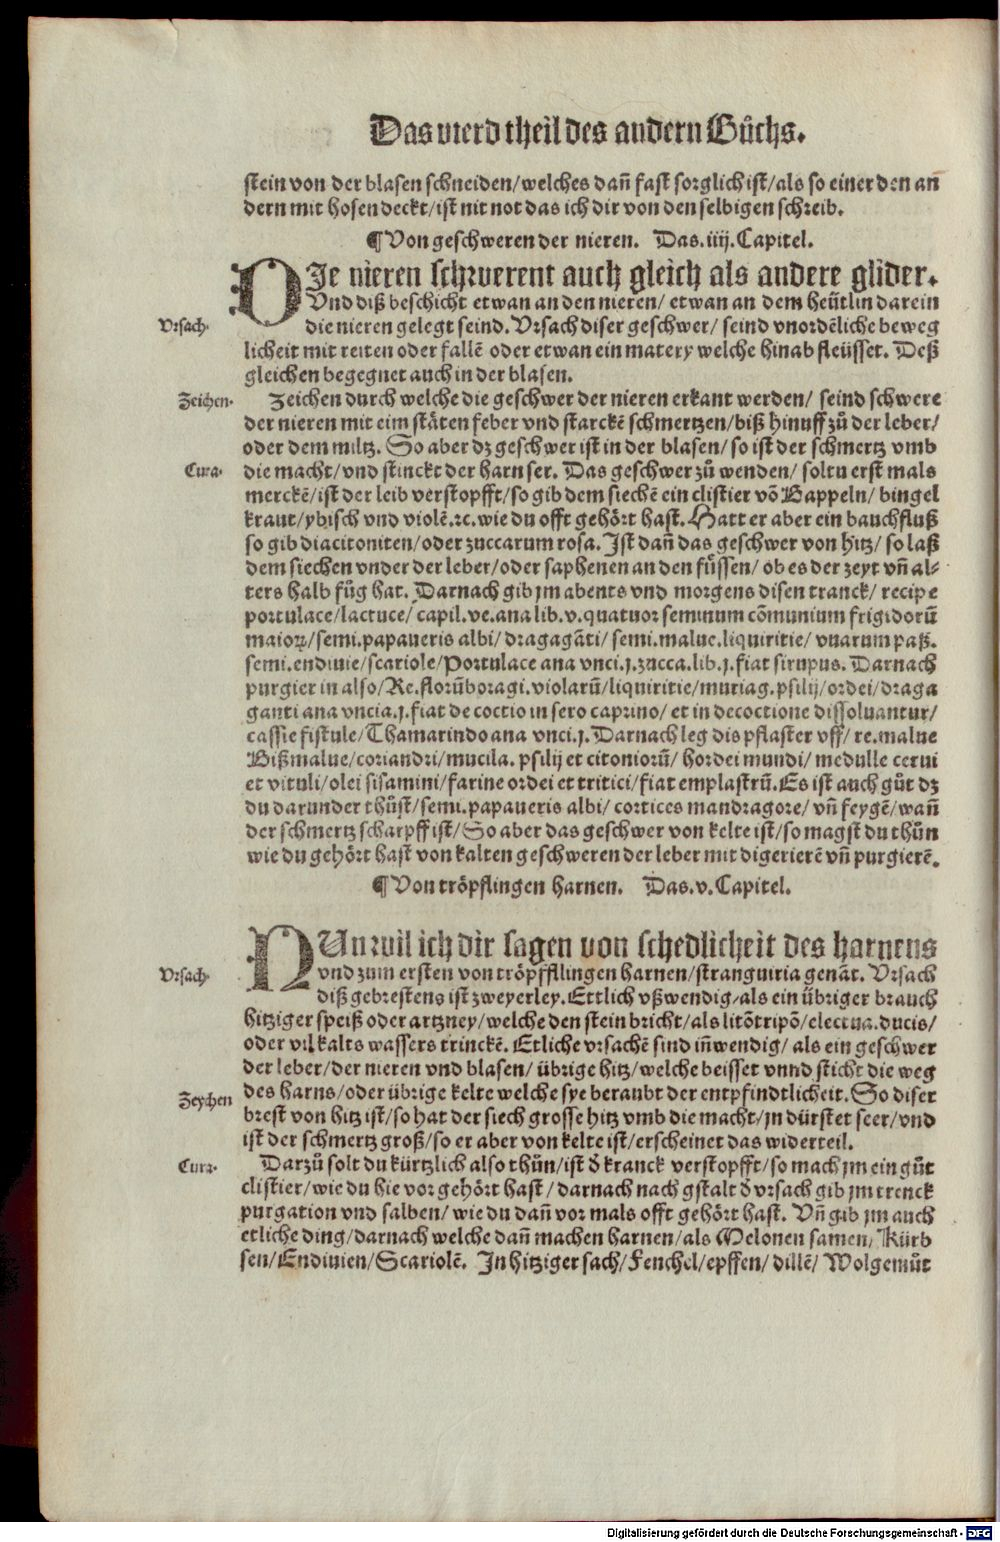 Das vierd theil des andern Bůchs.
stein von der blasen schneiden/welches dañ fast sorglich ist/als so einer den an
dern mit hosen deckt/ist nit not das ich dir von den selbigen schreib.
¶Von geschweren der nieren. Das.iiij.Capitel.
DIe nieren schwerent auch gleich als andere glider.
Vnd diß beschicht etwan an den nieren/ etwan an dem heütlin darein
Vrsach·
die nieren gelegt seind. Vrsach diser geschwer/ seind vnordẽliche beweg
licheit mit reiten oder fallẽ oder etwan ein matery welche hinab fleüsset. Deß
gleichen begegnet auch in der blasen.
Zeichen·
Zeichen durch welche die geschwer der nieren erkant werden/ seind schwere
der nieren mit eim stäten feber vnd starckẽ schmertzen/biß hinuff zů der leber/
oder dem miltz. So aber dz geschwer ist in der blasen/so ist der schmertz vmb
Cura·
die macht/vnd stinckt der harn ser. Das geschwer zů wenden/ soltu erst mals
merckẽ/ist der leib verstopfft/so gib dem siechẽ ein clistier võ Bappeln/ bingel
kraut/ybisch vnd violẽ.ꝛc.wie du offt gehört hast. Hatt er aber ein bauchfluß
so gib diacitoniten/oder zuccarum rosa. Ist dañ das geschwer von hitz/ so laß
dem siechen vnder der leber/oder saphenen an den fůssen/ ob es der zeyt vñ al-
ters halb fůg hat. Darnach gib jm abents vnd morgens disen tranck/ recipe
portulace/lactuce/ capil.ve.ana lib.v.quatuor seminum cõmunium frigidorũ
maioꝝ/semi.papaueris albi/ dragagãti/ semi.malue.liquiritie/ vuarum paß.
semi.endiuie/scariole/Portulace ana vnci.j.zucca.lib.j.fiat sirupus. Darnach
purgier in also/Re.florũboragi.violarũ/liquiritie/muriag.psilij/ordei/draga
ganti ana vncia.j.fiat de coctio in sero caprino/ et in decoctione dissoluantur/
cassie fistule/Thamarindo ana vnci.j.Darnach leg dis pflaster vff/ re.malue
Bißmalue/coriandri/mucila. psilij et citoniorũ/ hordei mundi/ medulle cerui
et vituli/olei sisamini/farine ordei et tritici/fiat emplastrũ.Es ist auch gůt dz
du darunder thůst/semi.papaueris albi/ cortices mandragore/ vñ feygẽ/wañ
der schmertz scharpff ist/So aber das geschwer von kelte ist/so magst du thůn
wie du gehört hast von kalten geschweren der leber mit digerierẽ vñ purgierẽ.
¶Von tröpflingen harnen. Das.v.Capitel.
NUn wil ich dir sagen von schedlicheit des harnens
Vrsach·
vnd zum ersten von tröpfflingen harnen/stranguiria genãt. Vrsach
diß gebrestens ist zweyerley.Ettlich vßwendig/als ein übriger brauch
hitziger speiß oder artzney/welche den stein bricht/als litõtripõ/electua.ducis/
oder vil kalts wassers trinckẽ. Etliche vrsachẽ sind iñwendig/ als ein geschwer
der leber/der nieren vnd blasen/ übrige hitz/welche beisset vnnd sticht die weg
Zeychen
des harns/oder übrige kelte welche sye beraubt der entpfindtlicheit. So diser
brest von hitz ist/so hat der siech grosse hitz vmb die macht/jn dürstet seer/vnd
ist der schmertz groß/so er aber von kelte ist/erscheinet das widerteil.
Cura·
Darzů solt du kürtzlich also thůn/ist ð kranck verstopfft/so mach jm ein gůt
clistier/wie du hie vor gehört hast/ darnach nach gstalt ð vrsach gib jm trenck
purgation vnd salben/ wie du dañ vor mals offt gehört hast. Vñ gib jm auch
etliche ding/darnach welche dañ machen harnen/als Melonen samen/ Kürb
sen/Endiuien/Scariolẽ. In hitziger sach/Fenchel/epffen/dillẽ/ Wolgemůt
Digitalisierung gefördert durch die Deutsche Forschungsgemeinschaft - DFG